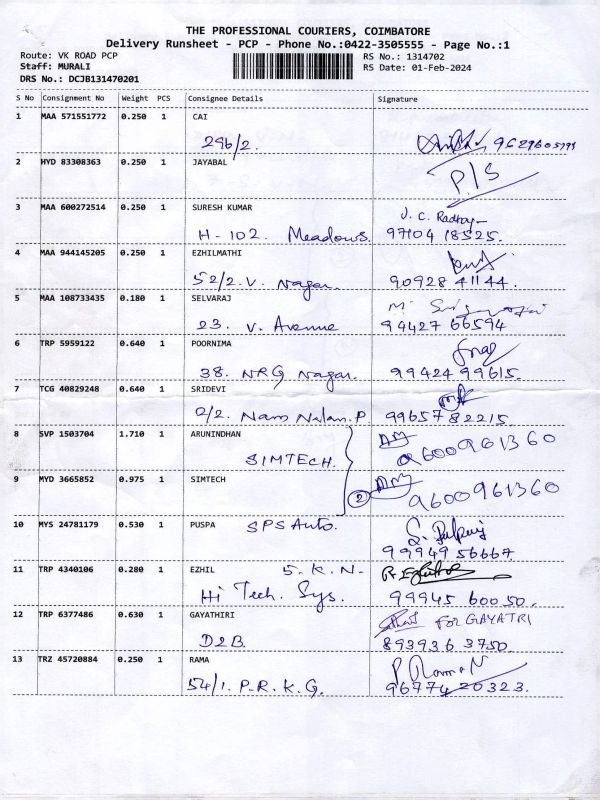 THE PROFESSIONAL COURIERS, COIMBATORE
Delivery Runsheet - PCP - Phone No.:0422-3505555 - Page No.:1
Route: VK ROAD PCP
Staff: MURALI
DRS No.: DCJB131470201
RS No.: 1314702
RS Date: 01-Feb-2024
S No Consignment No Weight PCS Consignee Details Signature
1 MAA 571551772 0.250 1 CAI
296/2.
2 HYD 83308363 0.250 1 JAYABAL P/S
3 MAA 600272514 0.250 1 SURESH KUMAR J. C.
H-102. Meadows. 97104 18525.
4 MAA 944145205 0.250 1 EZHILMATHI
52/2. V. Nagar. 90928 41144.
5 MAA 108733435 0.180 1 SELVARAJ
23. V. Avenue 99427 66594
6 TRP 5959122 0.640 1 POORNIMA
38. NRG Nagar. 99424 99615.
7 TCG 40829248 0.640 1 SRIDEVI
2/2. Nam Nalam. P 99657 82215.
8 SVP 1503704 1.710 1 ARUNINDHAN
SIMTECH. 9600961360
9 MYD 3665852 0.975 1 SIMTECH
2 9600961360
10 MYS 24781179 0.530 1 PUSPA SPS Auto.
99949 56667
11 TRP 4340106 0.280 1 EZHIL S. K. N.
Hi Tech. Sys. 99945 60050.
12 TRP 6377486 0.630 1 GAYATHIRI FOR GAYATRI
D2B. 893936 3750.
13 TRZ 45720884 0.250 1 RAMA P. Raman
54/1. P. R. K. G. 96774 20323.